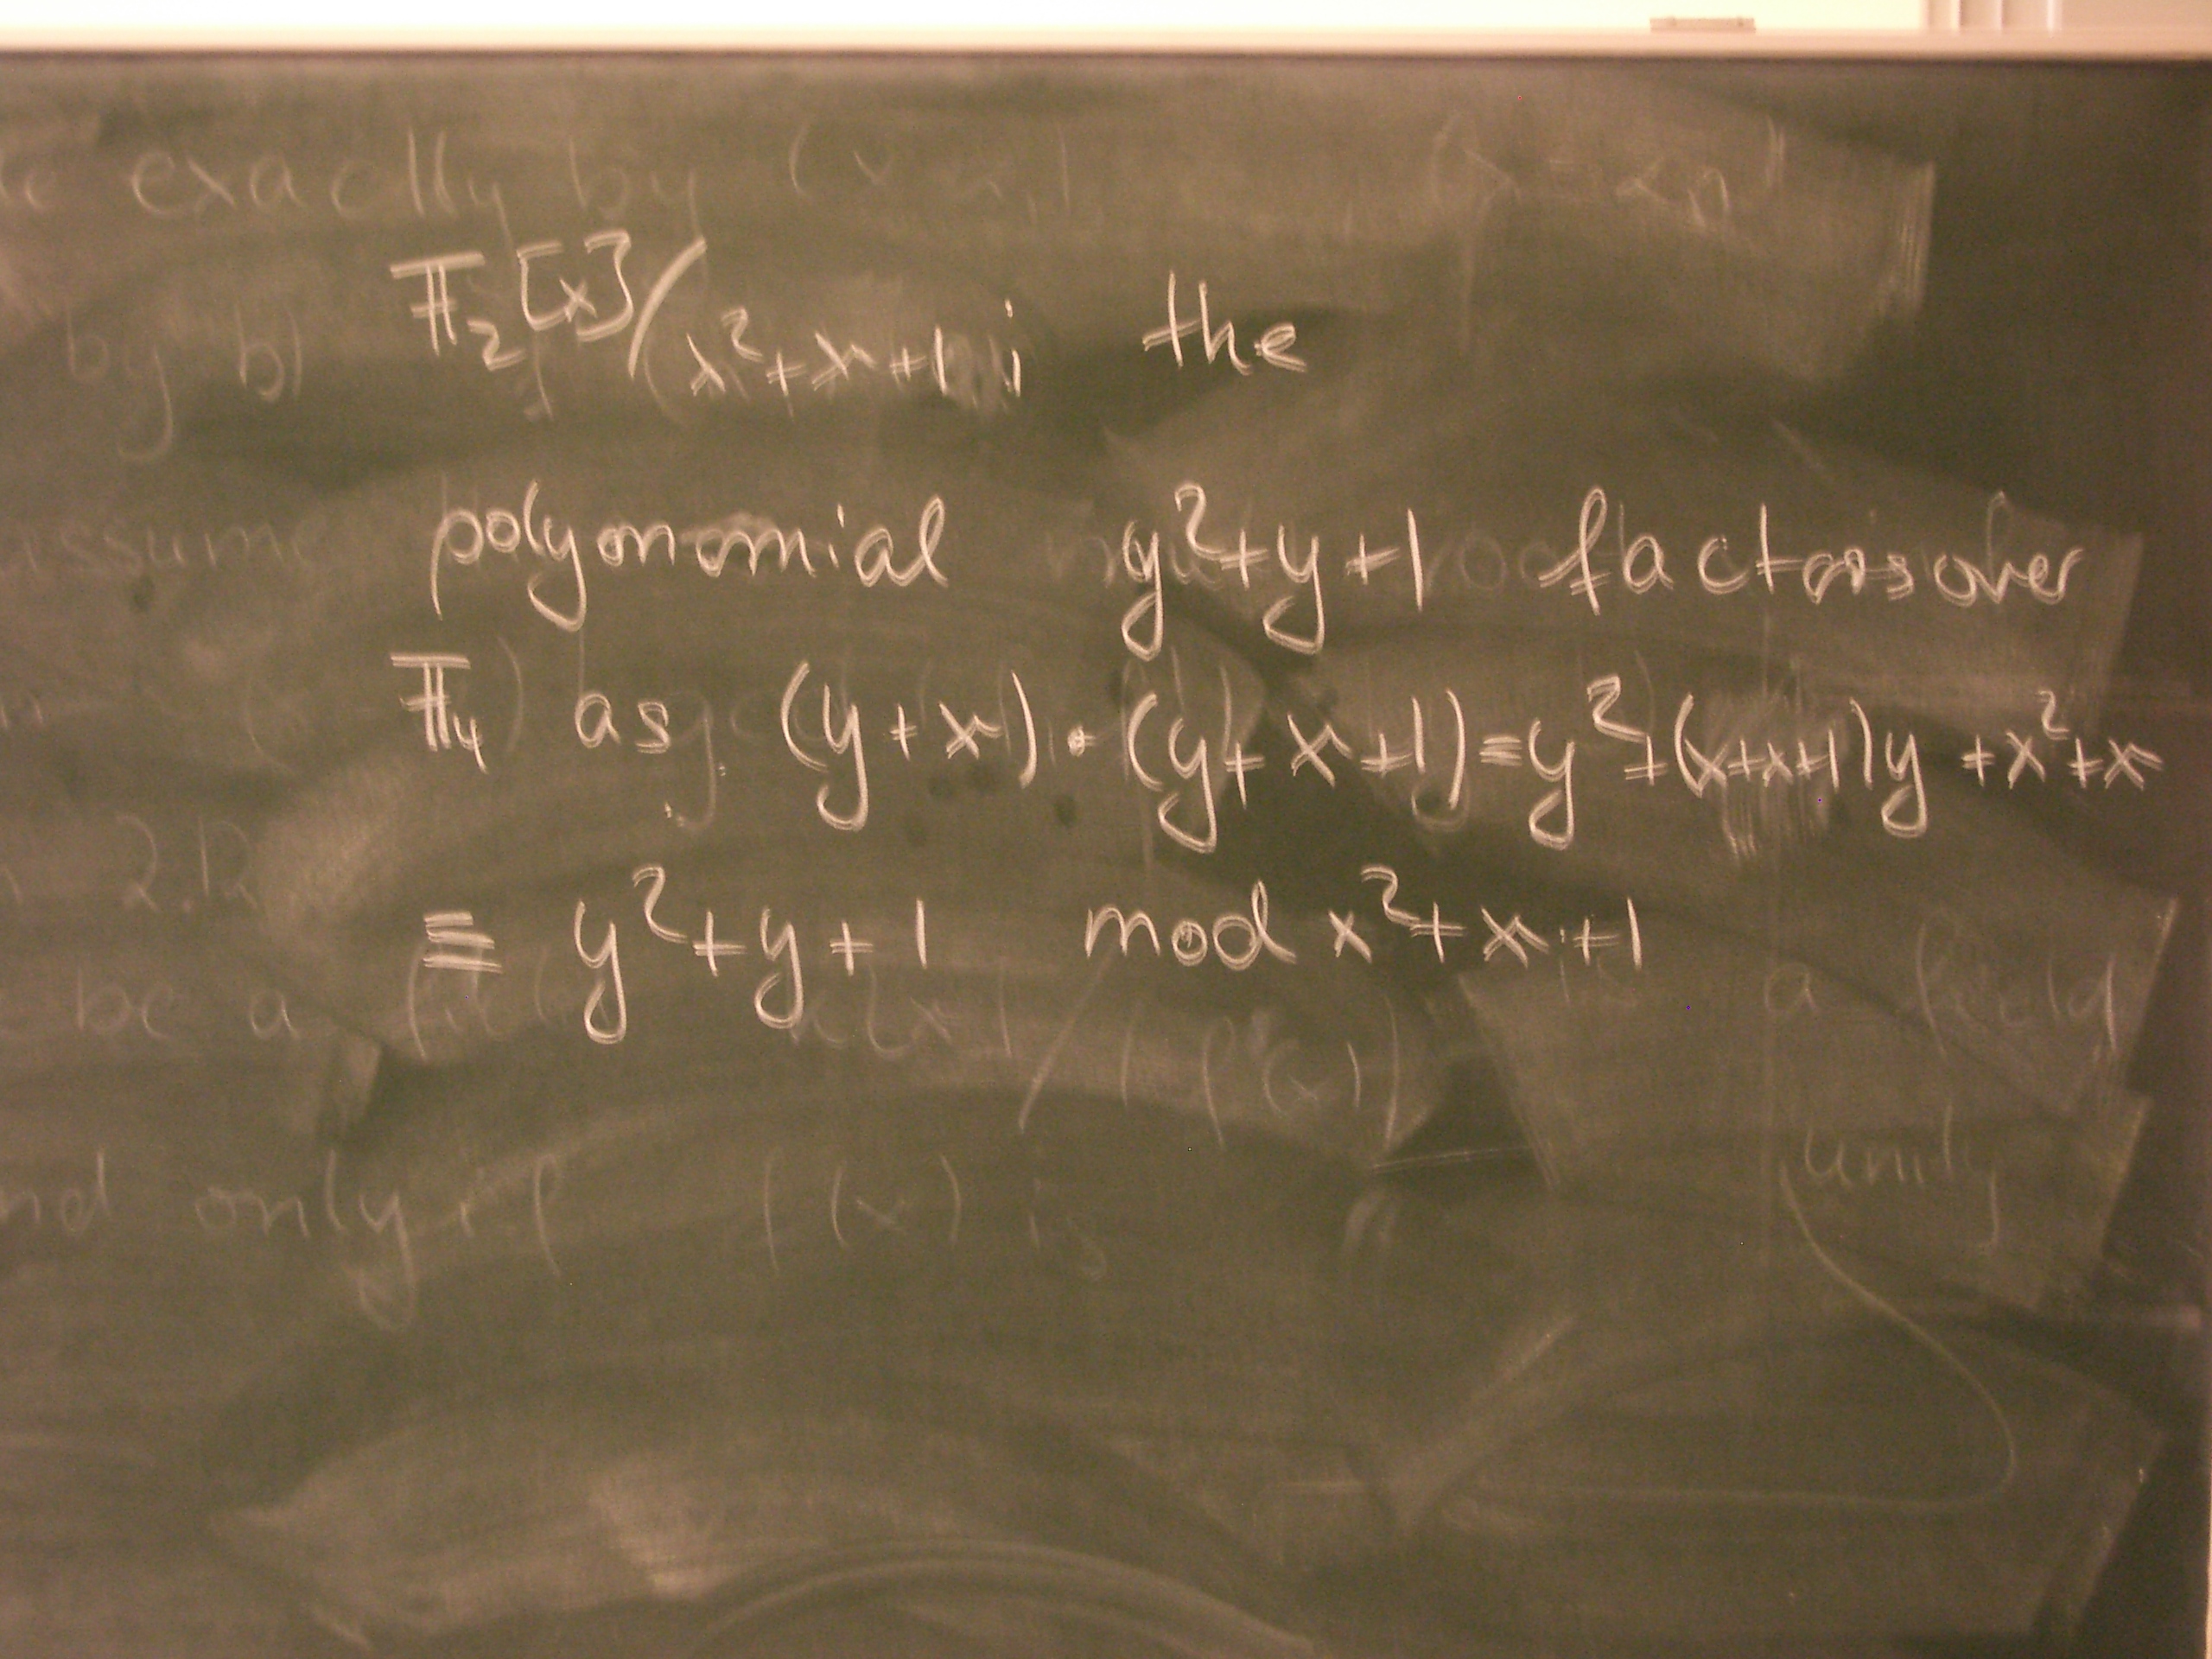 𝔽₂[x]/(x²+x+1) ; the
polynomial y²+y+1 factors over
𝔽₄ as (y+x)·(y+x+1)=y²+(x+x+1)y+x²+x
≡ y²+y+1 mod x²+x+1